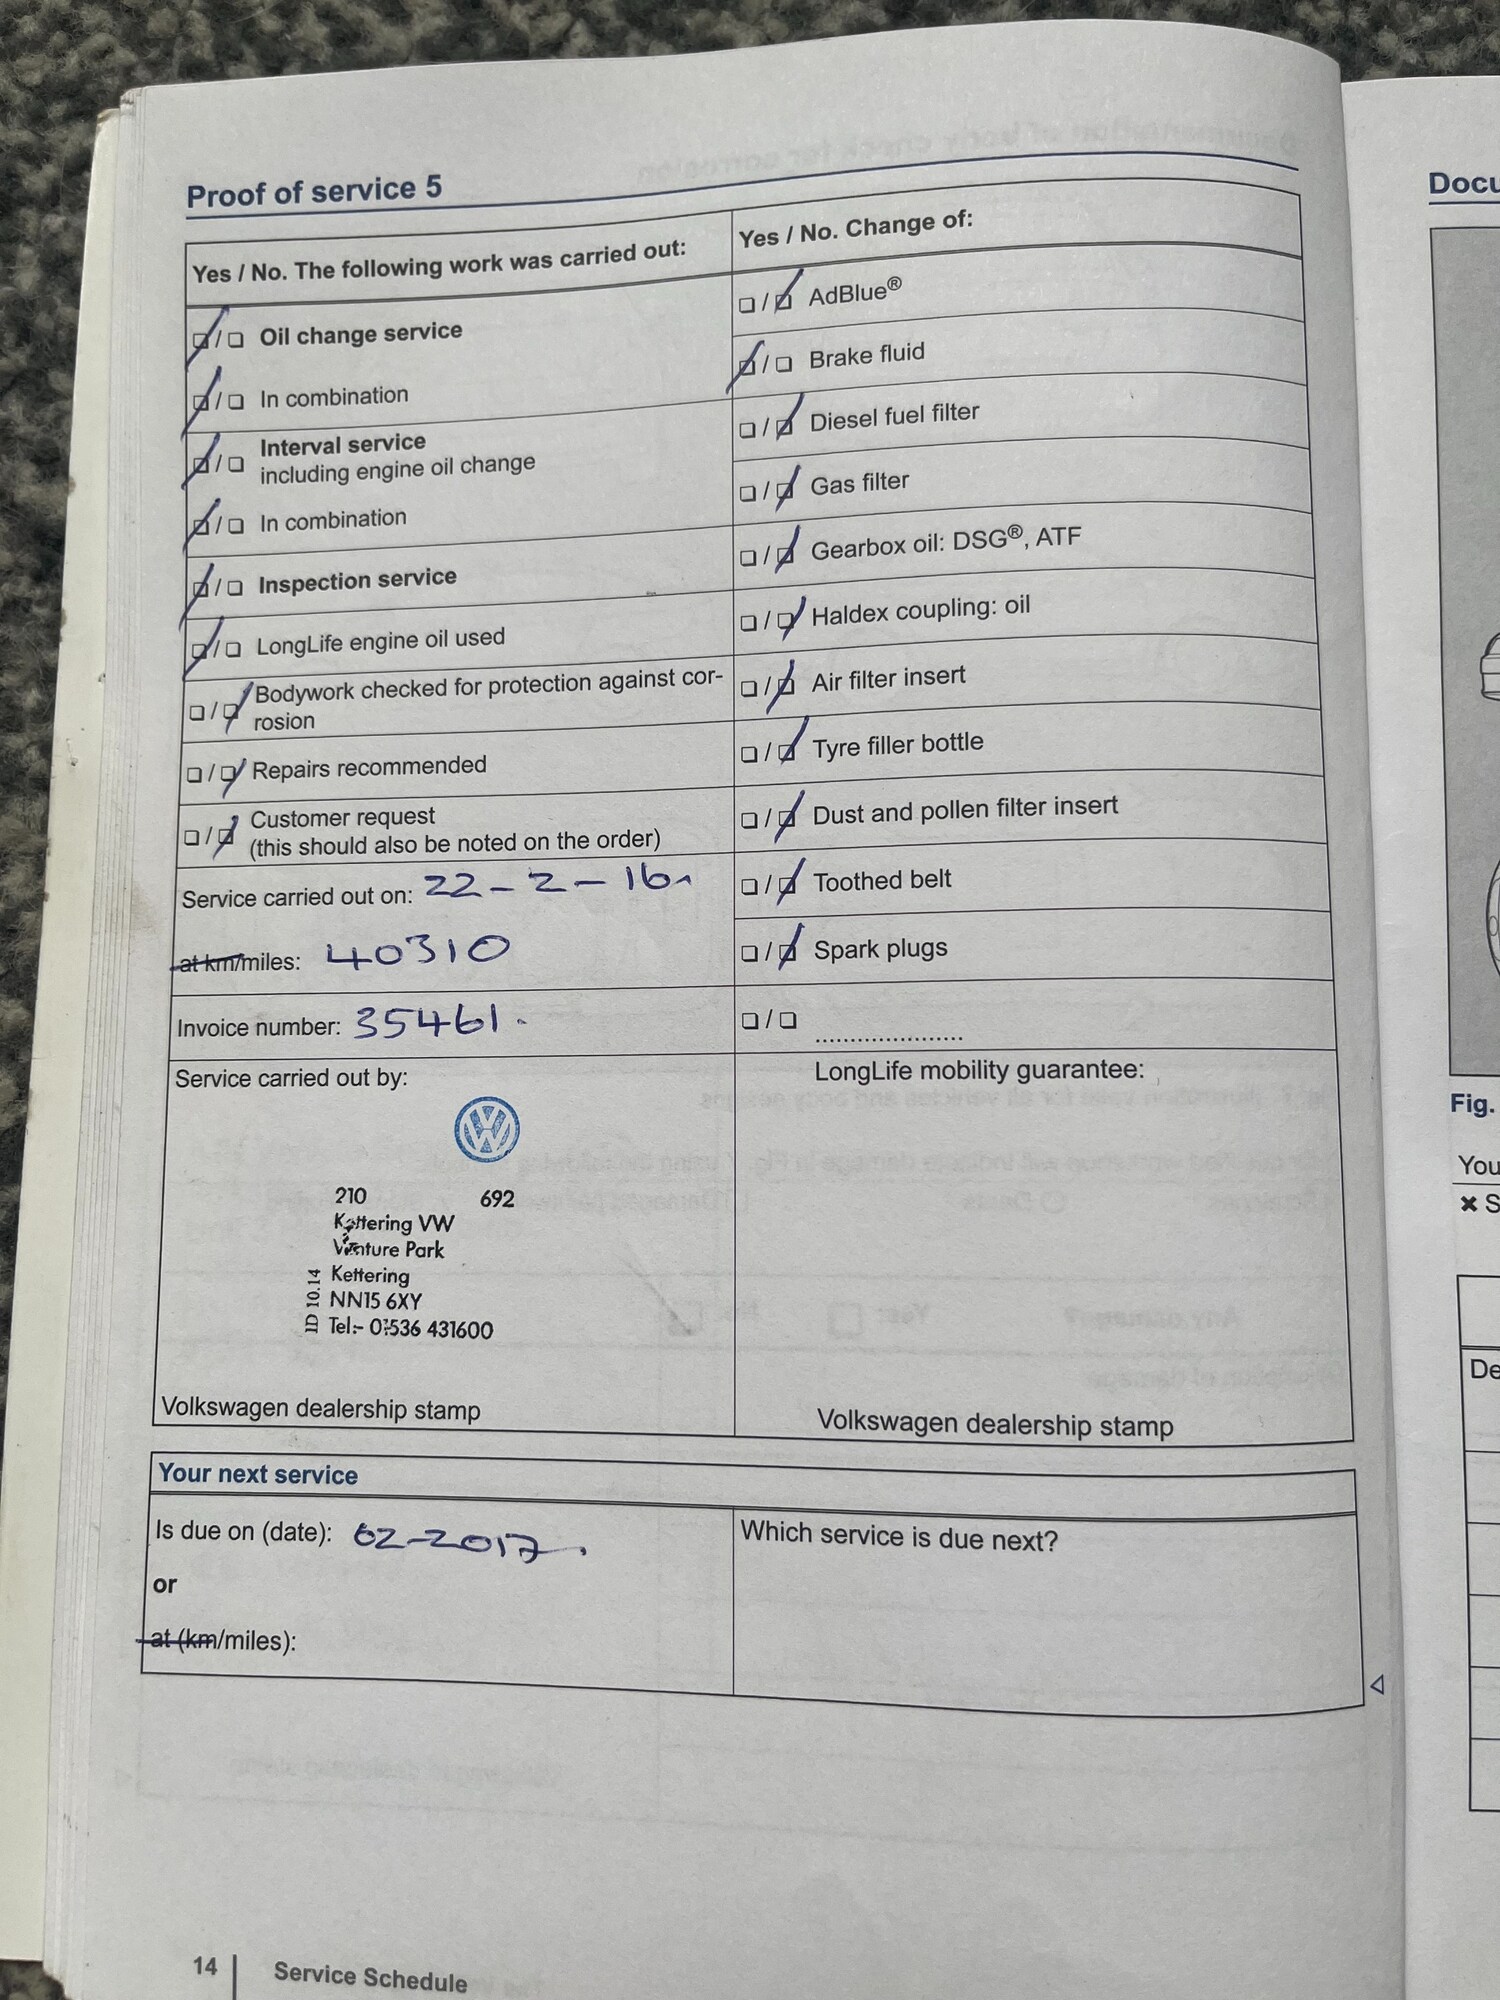 Proof of service 5
Yes / No. The following work was carried out:
❑ / ❑ Oil change service
❑ / ❑ In combination
❑ / ❑ Interval service
including engine oil change
❑ / ❑ In combination
❑ / ❑ Inspection service
❑ / ❑ LongLife engine oil used
❑ / ❑ Bodywork checked for protection against cor-
rosion
❑ / ❑ Repairs recommended
❑ / ❑ Customer request
(this should also be noted on the order)
Service carried out on: 22-2-16
at km/miles: 40310
Invoice number: 35461.
Yes / No. Change of:
❑ / ❑ AdBlue®
❑ / ❑ Brake fluid
❑ / ❑ Diesel fuel filter
❑ / ❑ Gas filter
❑ / ❑ Gearbox oil: DSG®, ATF
❑ / ❑ Haldex coupling: oil
❑ / ❑ Air filter insert
❑ / ❑ Tyre filler bottle
❑ / ❑ Dust and pollen filter insert
❑ / ❑ Toothed belt
❑ / ❑ Spark plugs
❑ / ❑ .....................
Service carried out by:
210 692
Kettering VW
Venture Park
Kettering
NN15 6XY
Tel:- 01536 431600
ID 10.14
Volkswagen dealership stamp
LongLife mobility guarantee:
Volkswagen dealership stamp
Your next service
Is due on (date): 02-2017.
or
at (km/miles):
Which service is due next?
14 | Service Schedule
Docu
Fig.
You
✖ S
De